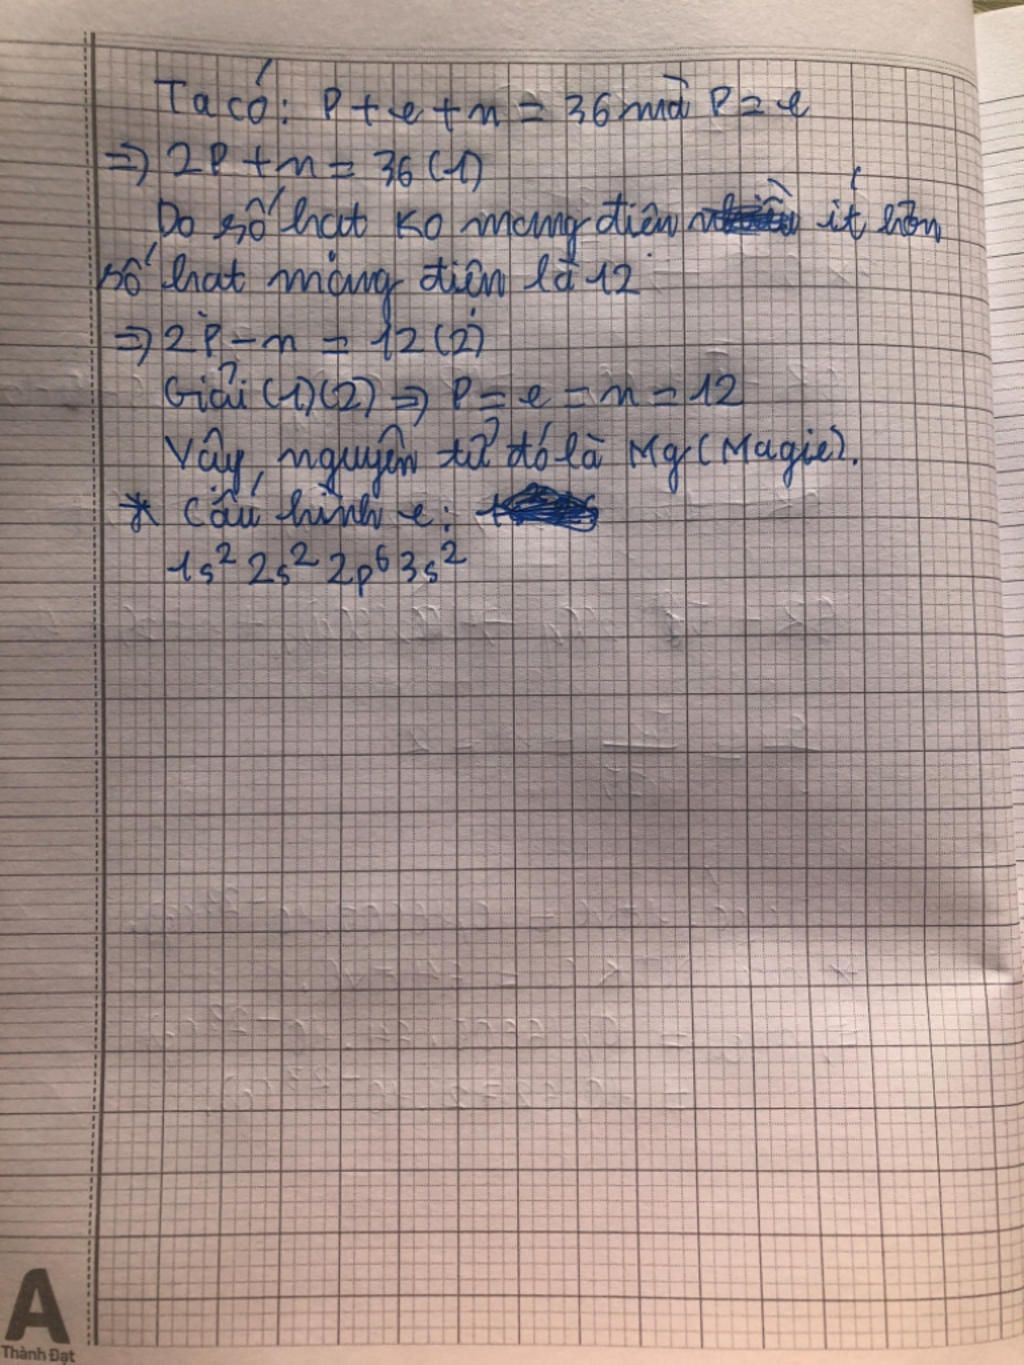 Ta có: P + e + n = 36 mà P = e
=> 2P + n = 36 (1)
Do số hạt ko mang điện ít hơn
số hạt mang điện là 12
=> 2P - n = 12 (2)
Giải (1)(2) => P = e = n = 12
Vậy, nguyên tử đó là Mg (Magie).
* Cấu hình e:
1s² 2s² 2p⁶ 3s²
A
Thành Đạt